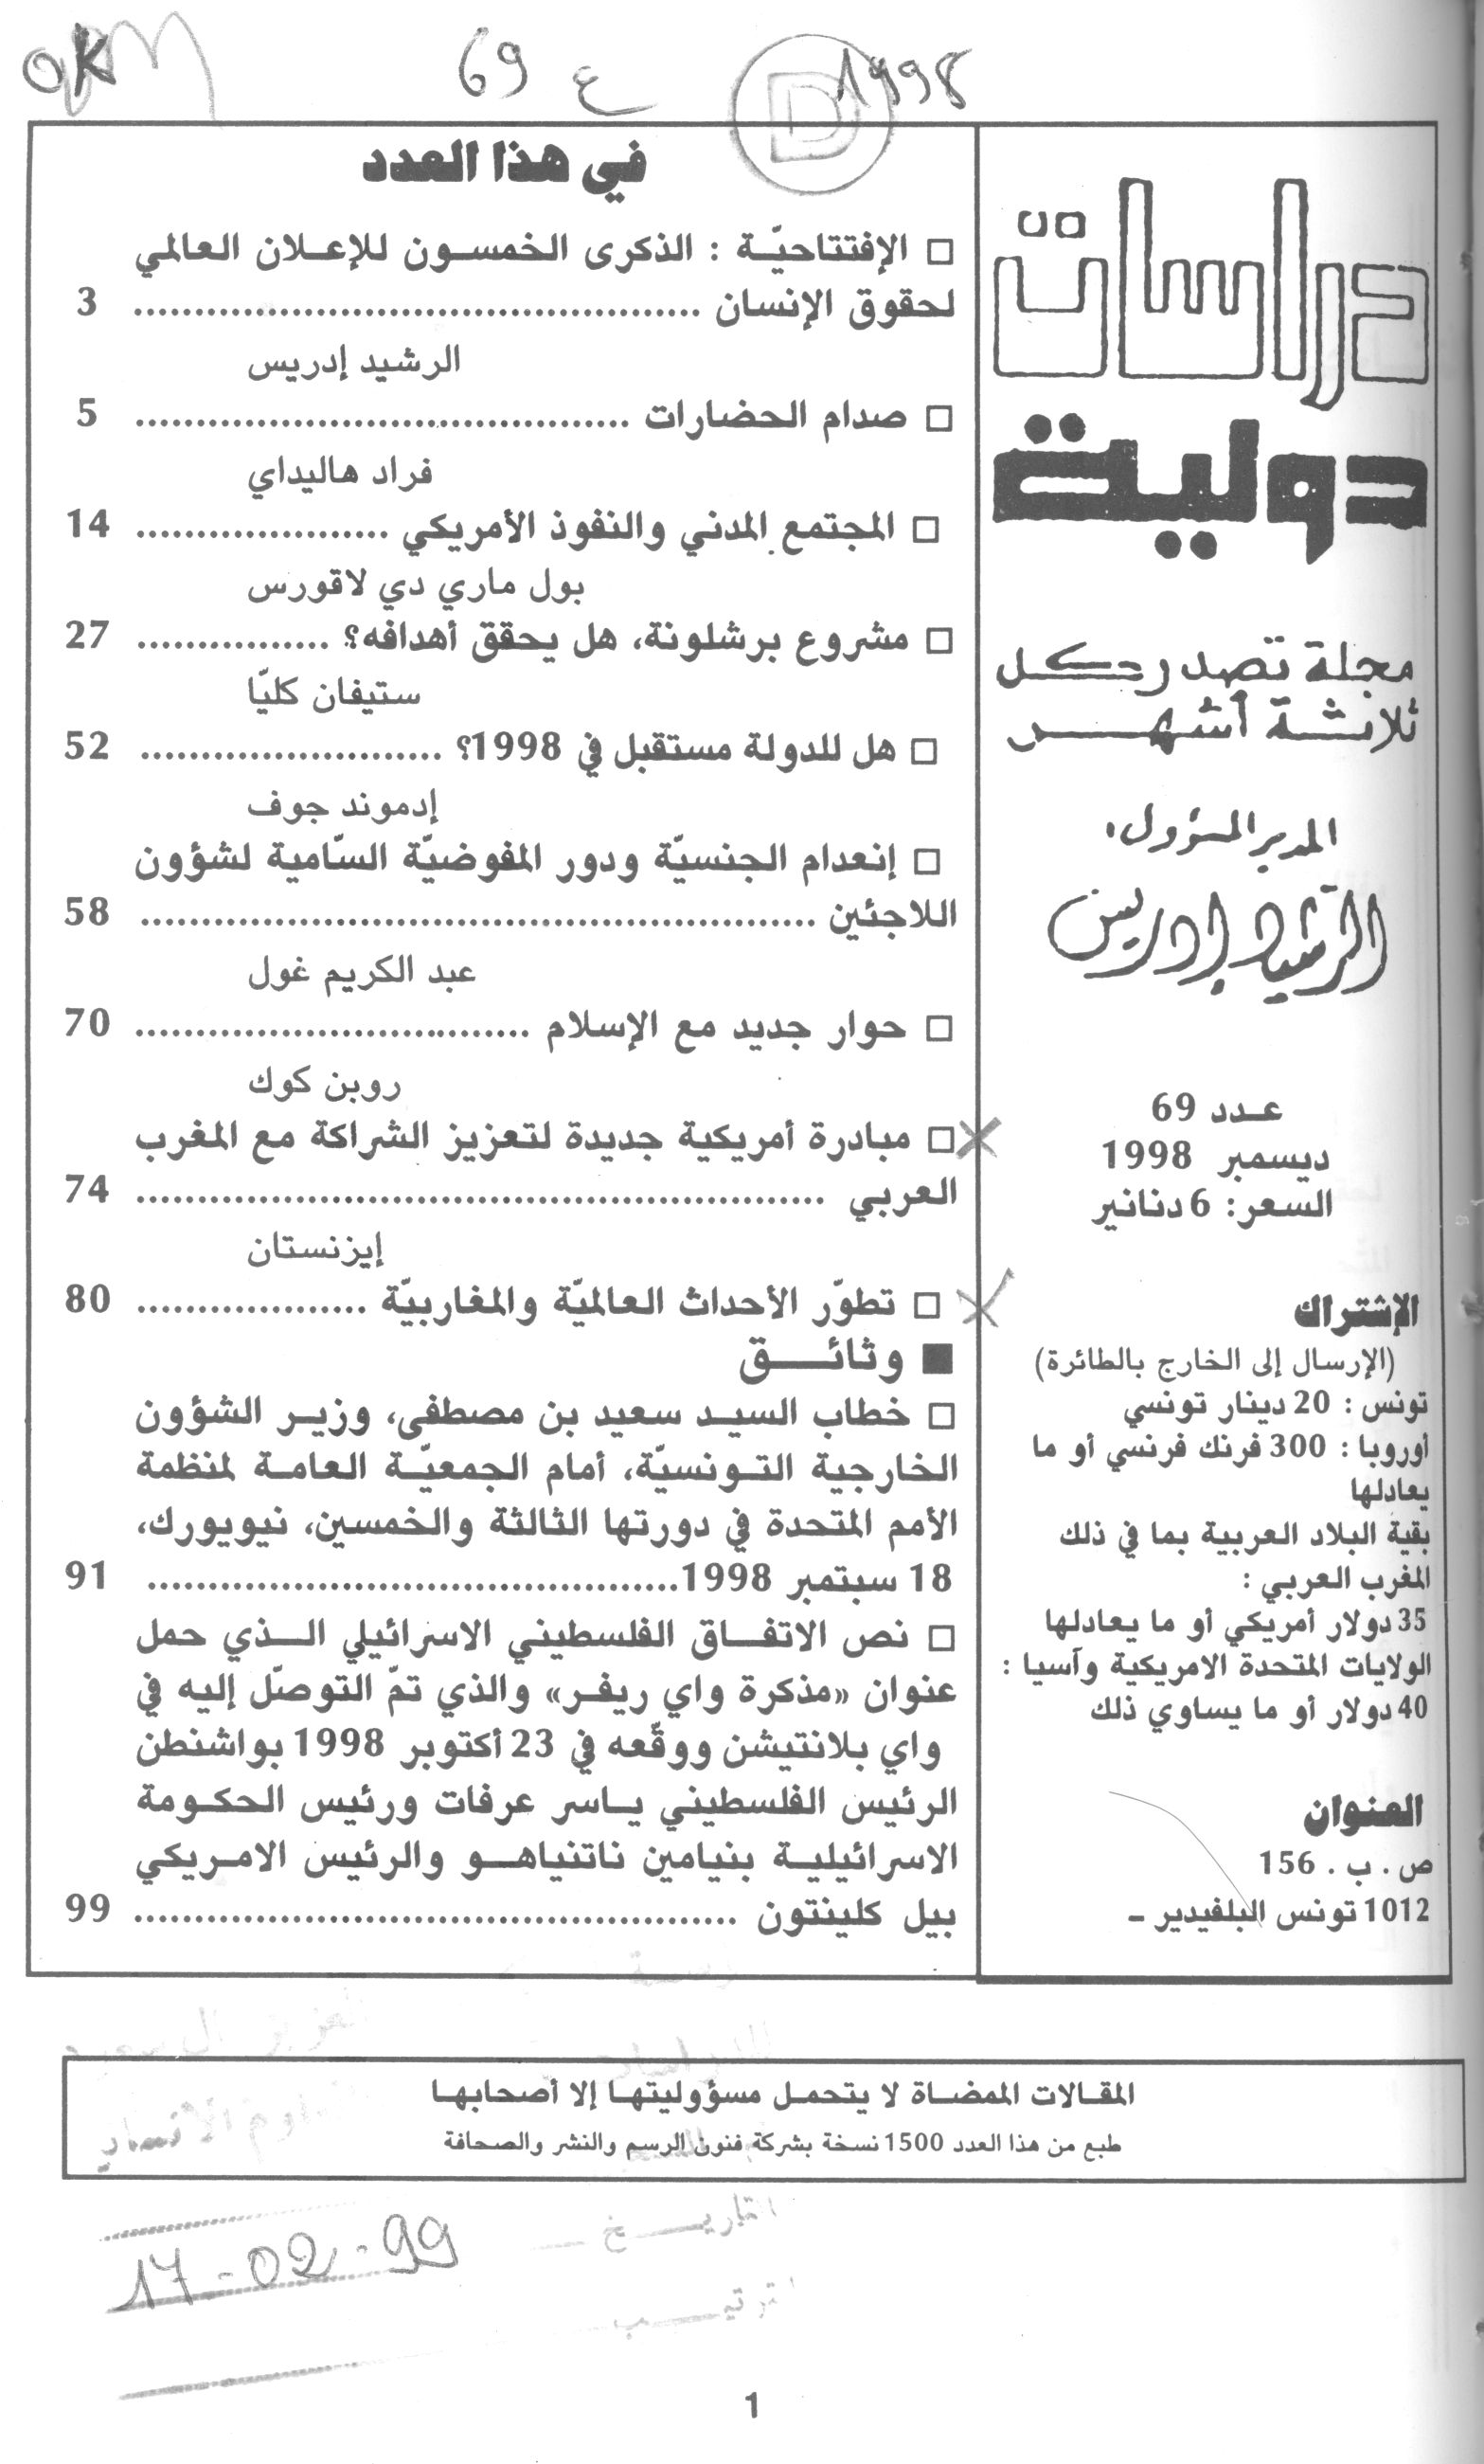 OK
69 ع
D
1998
دراسات
دولية
مجلة تصدر كل
ثلاثة أشهر
المدير المسؤول،
الرشيد إدريس
عـدد 69
ديسمبر 1998
السعر: 6 دنانير
الإشتراك
(الإرسال إلى الخارج بالطائرة)
تونس : 20 دينار تونسي
أوروبا : 300 فرنك فرنسي أو ما
يعادلها
بقية البلاد العربية بما في ذلك
المغرب العربي :
35 دولار أمريكي أو ما يعادلها
الولايات المتحدة الامريكية وآسيا :
40 دولار أو ما يساوي ذلك
العنوان
ص . ب . 156
1012 تونس البلفيدير ـ
في هذا العدد
□ الإفتتاحيّة : الذكرى الخمسون للإعلان العالمي
لحقوق الإنسان ............................................... 3
الرشيد إدريس
□ صدام الحضارات ......................................... 5
فراد هاليداي
□ المجتمع المدني والنفوذ الأمريكي ..................... 14
بول ماري دي لاقورس
□ مشروع برشلونة، هل يحقق أهدافه؟ ................ 27
ستيفان كليّا
□ هل للدولة مستقبل في 1998؟ ......................... 52
إدموند جوف
□ إنعدام الجنسيّة ودور المفوضيّة السّامية لشؤون
اللاجئين ........................................................ 58
عبد الكريم غول
□ حوار جديد مع الإسلام ................................. 70
روبن كوك
□ مبادرة أمريكية جديدة لتعزيز الشراكة مع المغرب
العربي ......................................................... 74
إيزنستان
□ تطوّر الأحداث العالميّة والمغاربيّة ................... 80
■ وثائـــق
□ خطاب السيد سعيد بن مصطفى، وزير الشؤون
الخارجية التونسيّة، أمام الجمعيّة العامة لمنظمة
الأمم المتحدة في دورتها الثالثة والخمسين، نيويورك،
18 سبتمبر 1998............................................ 91
□ نص الاتفاق الفلسطيني الاسرائيلي الذي حمل
عنوان «مذكرة واي ريفر» والذي تمّ التوصّل إليه في
واي بلانتيشن ووقّعه في 23 أكتوبر 1998 بواشنطن
الرئيس الفلسطيني ياسر عرفات ورئيس الحكومة
الاسرائيلية بنيامين ناتنياهو والرئيس الامريكي
بيل كلينتون .................................................. 99
المقالات الممضاة لا يتحمل مسؤوليتها إلا أصحابها
طبع من هذا العدد 1500 نسخة بشركة فنون الرسم والنشر والصحافة
التاريـــخ
17-02-99
الترتيـــب
1